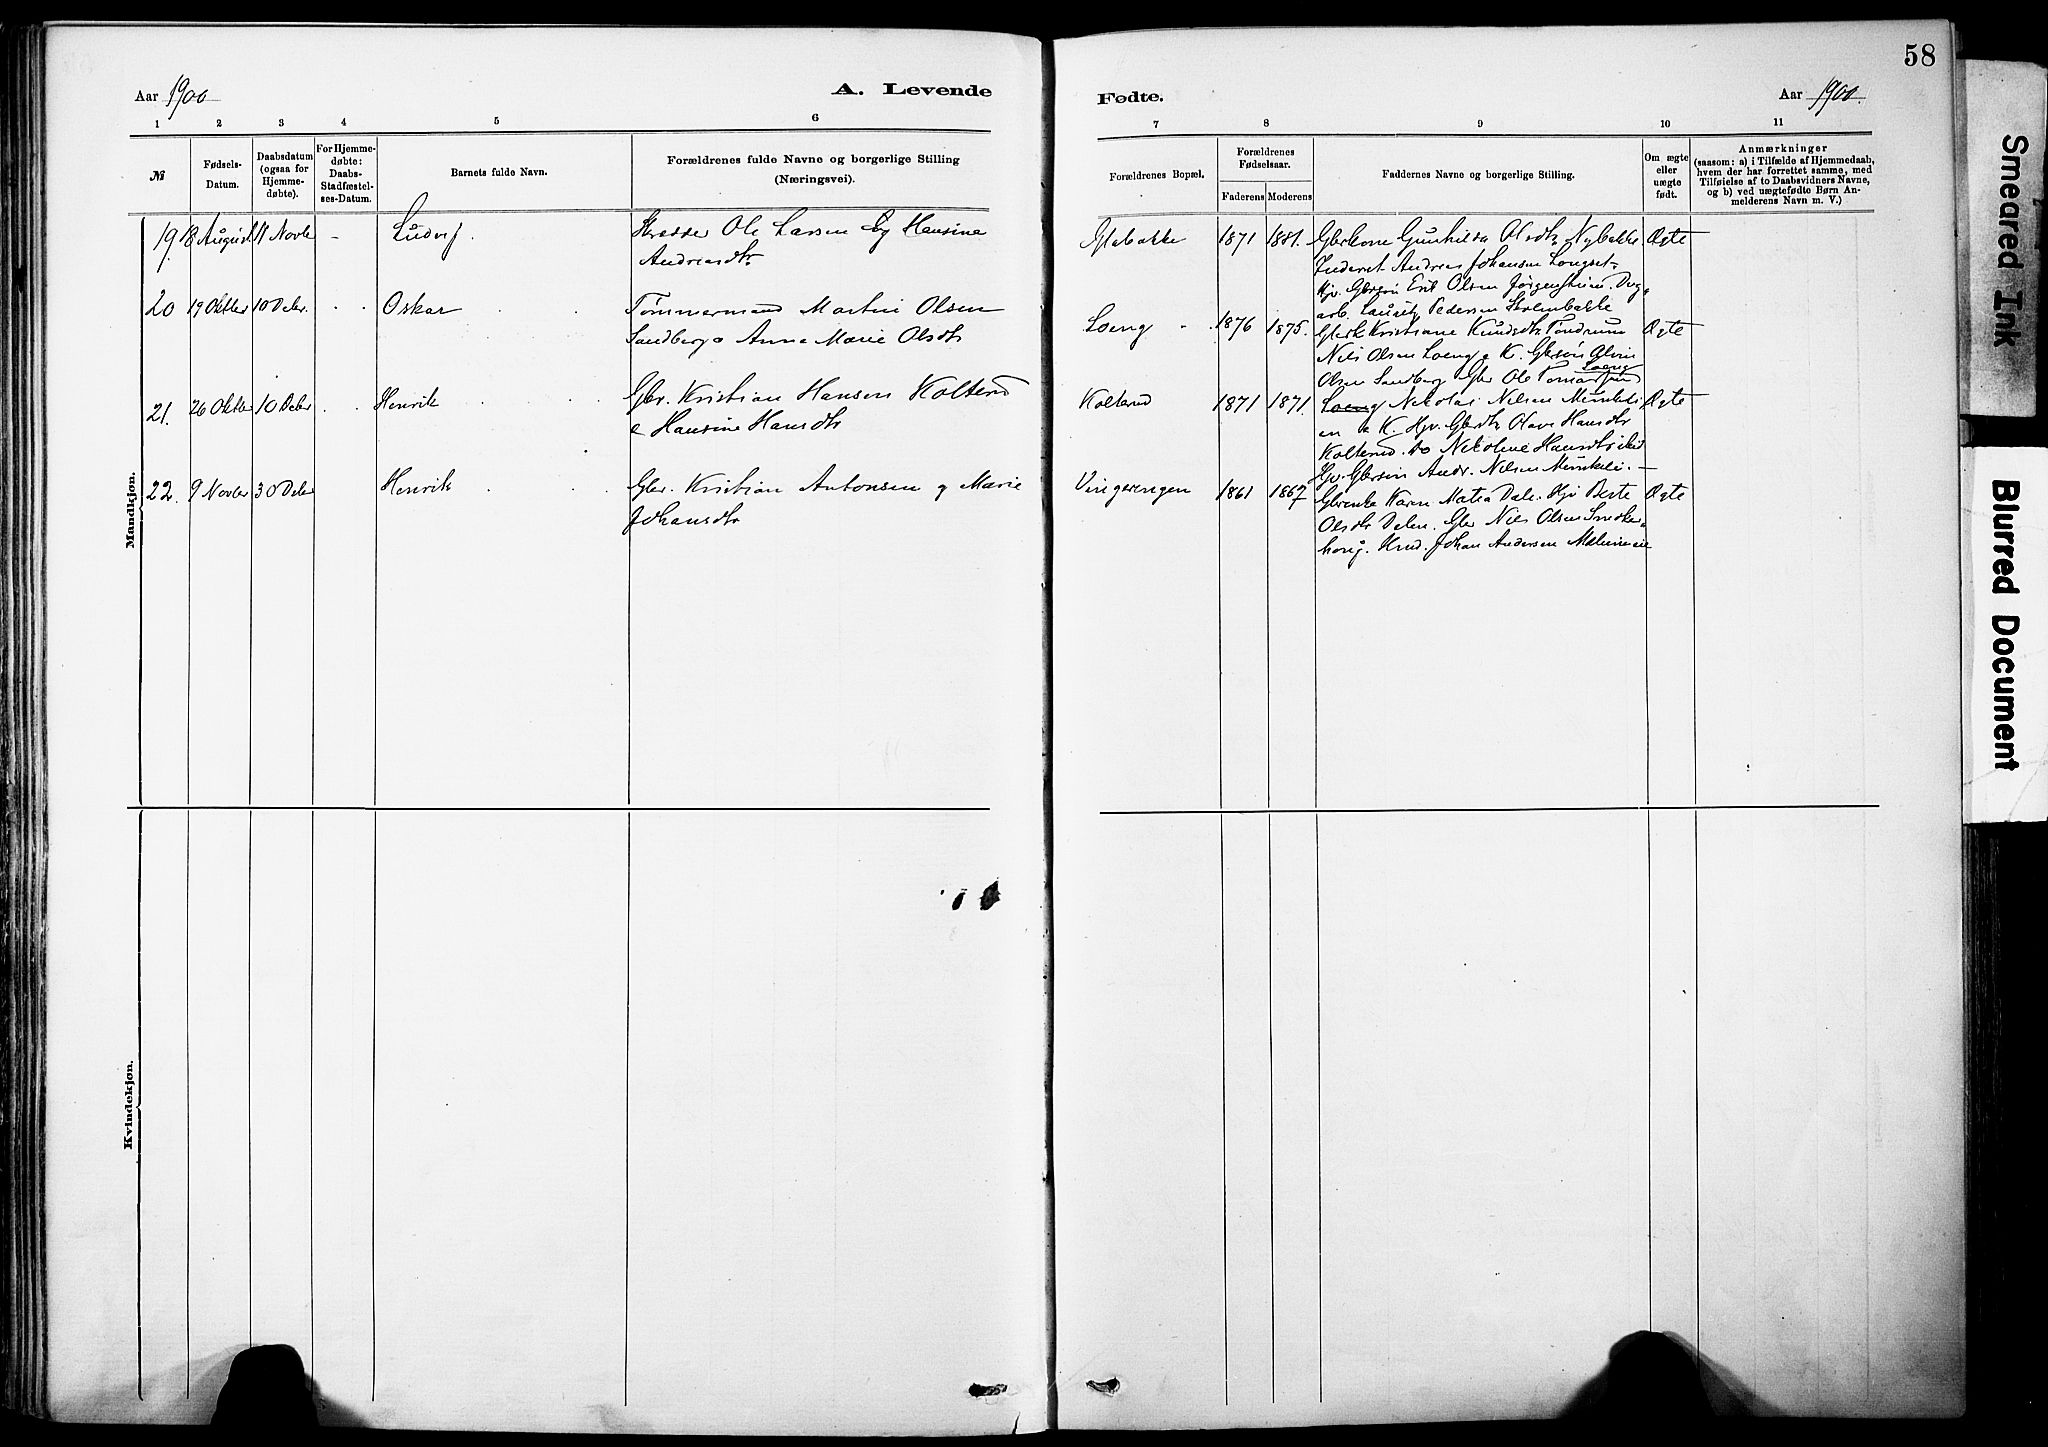 58
Aar 1900
A. Levende
Fødte.
Aar 1900.
1 2 3 4 5 6
7 8 9 10 11
№
Fødsels-
Datum.
Daabsdatum
(ogsaa for
Hjemme-
døbte).
For Hjemme-
døbte:
Daabs-
Stadfæstel-
ses-Datum.
Barnets fulde Navn.
Forældrenes fulde Navne og borgerlige Stilling
(Næringsvei).
Forældrenes Bopæl.
Forældrenes
Fødselsaar.
Faderens Moderens
Faddernes Navne og borgerlige Stilling.
Om ægte
eller
uægte
født.
Anmærkninger
(saasom: a) i Tilfælde af Hjemmedaab,
hvem der har forrettet samme, med
Tilføielse af to Daabsvidners Navne,
og b) ved uægtefødte Børn An-
melderens Navn m. V.)
Mandkjøn.
19. 18 August 11 Novbr - Ludvig
Ole Larsen og Hansine
Andreasdtr.
1871 1881. Gunhilda Olsdtr Nybakke Ægte
Inderst Andreas Johansen Longset.
Erik Olsen
arb. Lauritz Pedersen
20 19 Oktbr 10 Debr. Oskar
Tømmermand Martin Olsen
Sandberg o Anne Marie Olsdtr
Loeng 1876 1875. Kristiane Knudsdtr Tøndrum Ægte
Nils Olsen Loeng o K. Gbrsøn Alvin
Olsen Sandberg Gbr Ole
Loeng
21. 26 Oktbr 10 Debr Henrik
Gbr. Kristian Hansen Kolterud
o Hansine Hansdtr
Kolterud 1871 1871. Loeng Nikolai Nilsen Ægte
K. Hjv. Gbrdtr Olave Hansdtr
Kolterud. do Nikoline Hansdtr
Hjv. Gbrsøn Andr. Nilsen
22. 9 Novbr 30 Debr Henrik
Gbr. Kristian Antonsen og Marie
Johansdtr
Vingerengen 1861 1867 Gbrenke Karen Matea Dale. Hjv Berte Ægte
Olsdtr Dalen. Gbr Nils Olsen
haug. Johan Andersen
Kvindekjøn.
Smeared Ink
Blurred Document